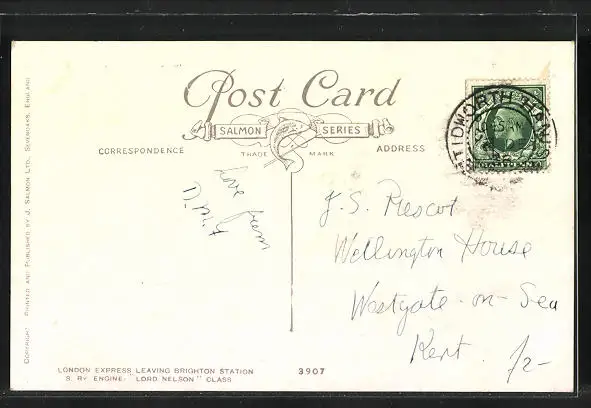 Post Card
SALMON SERIES
TRADE MARK
CORRESPONDENCE
ADDRESS
Love from
D.M.Y
J.S. Prescot
Wellington House
Westgate-on-Sea
Kent.
/2-
TIDWORTH HANTS
HALFPENNY
COPYRIGHT PRINTED AND PUBLISHED BY J. SALMON LTD., SEVENOAKS, ENGLAND
LONDON EXPRESS LEAVING BRIGHTON STATION
S. RY ENGINE "LORD NELSON" CLASS
3907